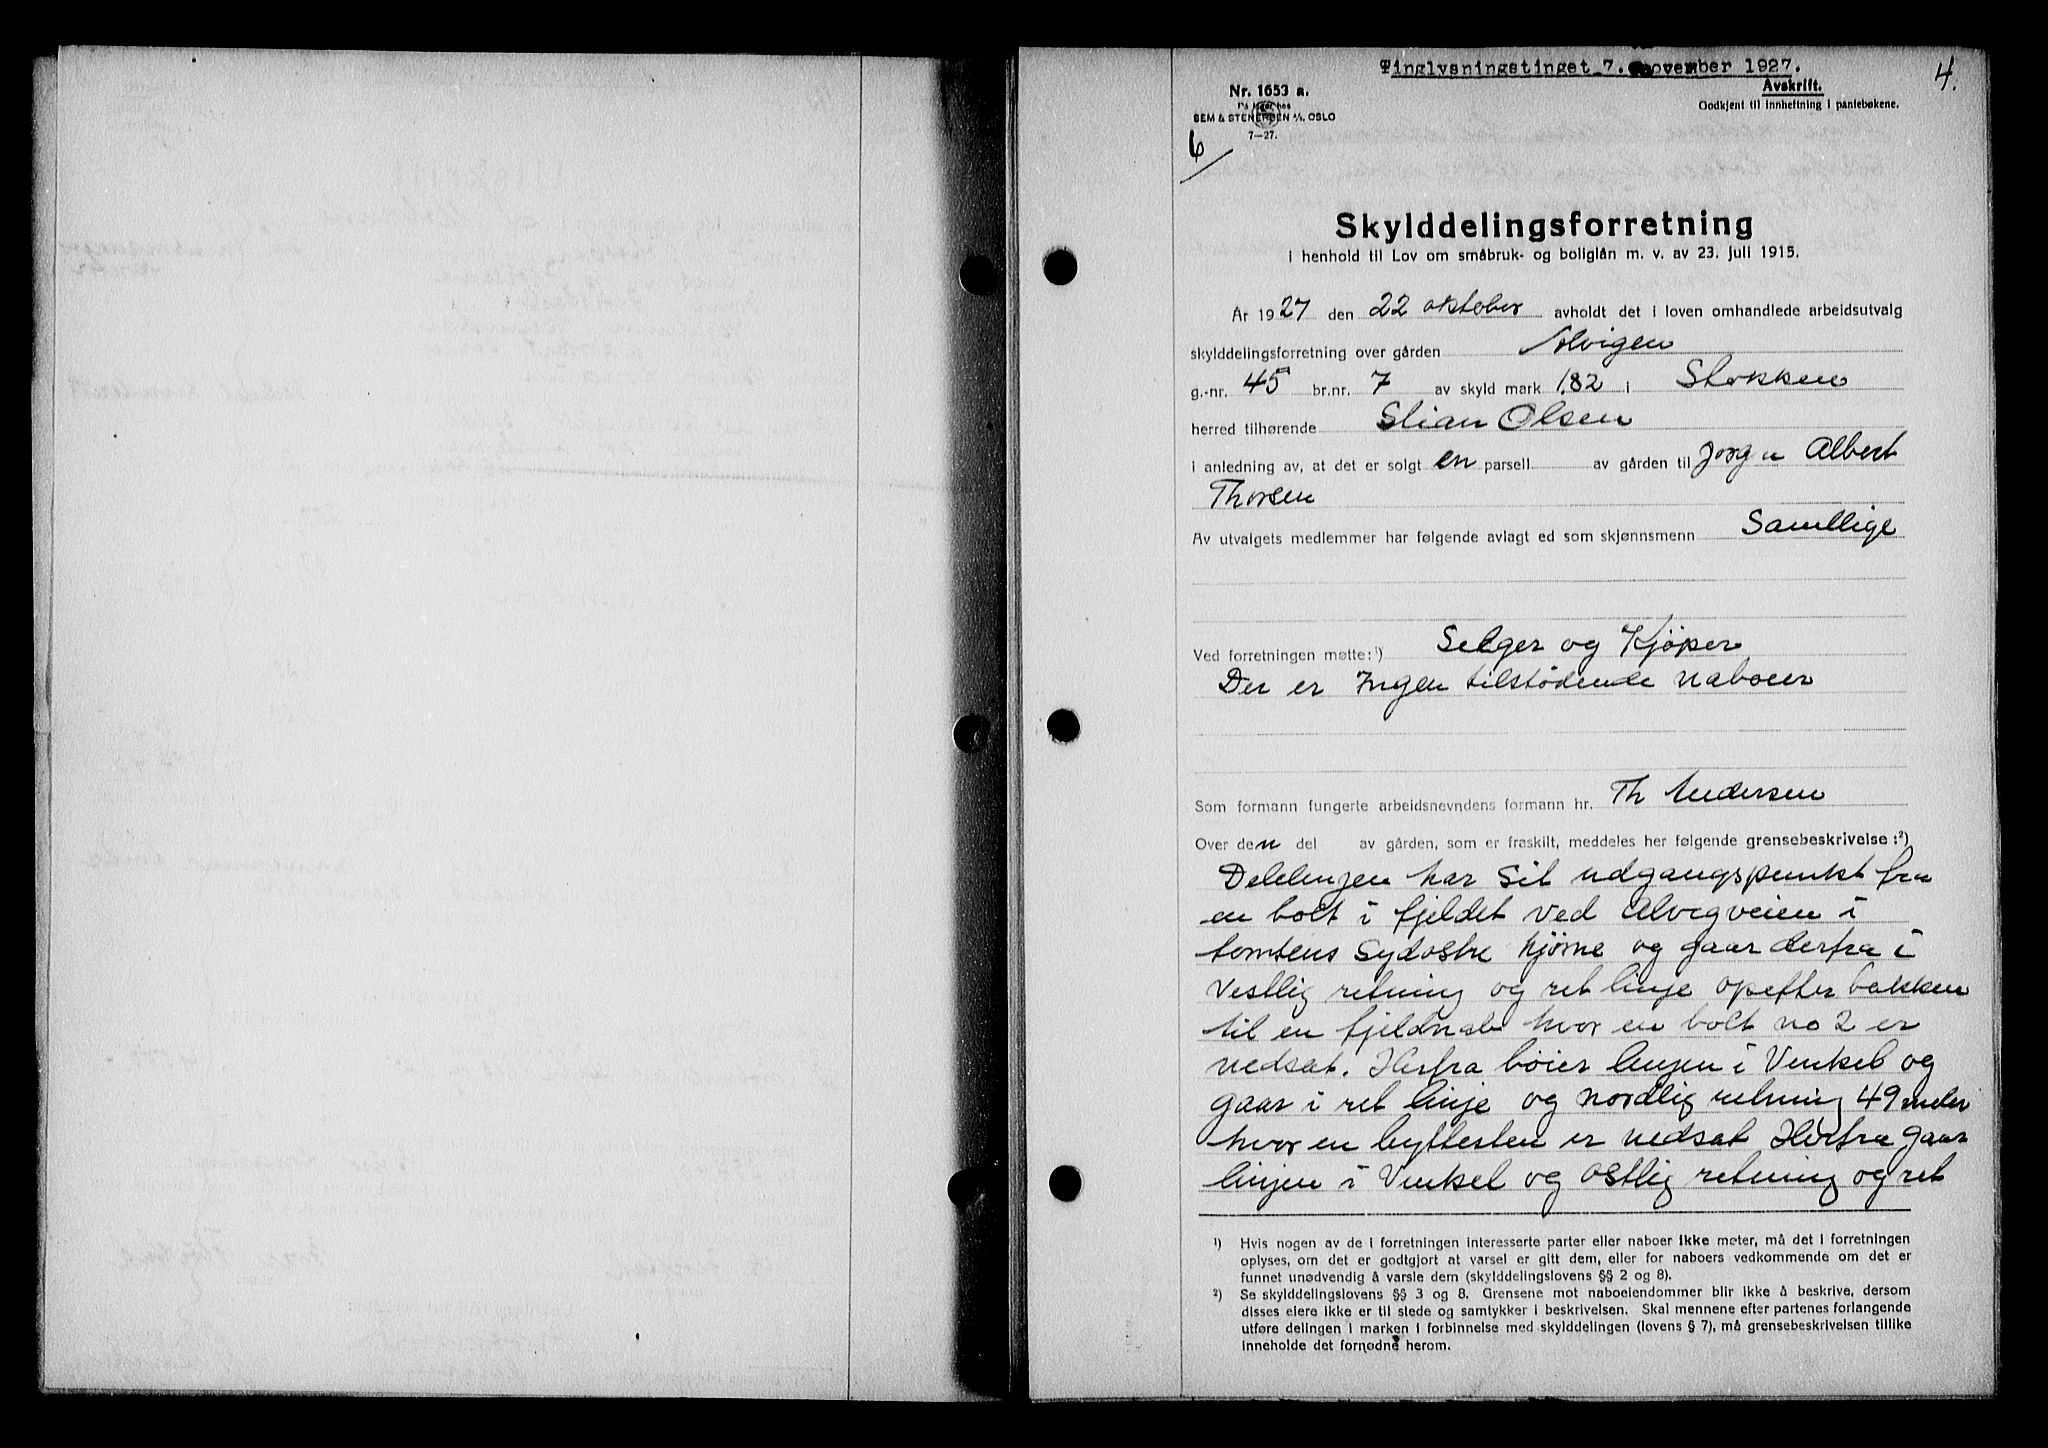 Tinglysningstinget 7. november 1927.
4.
Nr. 1653 a.
Avskrift.
På lager hos
Godkjent til innheftning i pantebøkene.
SEM & STENERSEN A/S, OSLO
7—27.
6
Skylddelingsforretning
i henhold til Lov om småbruk- og boliglån m. v. av 23. juli 1915.
År 1927 den 22 oktober avholdt det i loven omhandlede arbeidsutvalg
skylddelingsforretning over gården Alvigen
g.-nr. 45 br.nr. 7 av skyld mark 1.82 i Stokken
herred tilhørende Stian Olsen
i anledning av, at det er solgt en parsell av gården til Jørgen Albert
Thorsen
Av utvalgets medlemmer har følgende avlagt ed som skjønnsmenn Samtlige
Ved forretningen møtte:¹) Selger og Kjøper
Der er Ingen tilstødende naboer
Som formann fungerte arbeidsnevndens formann hr. Th Andersen
Over den del av gården, som er fraskilt, meddeles her følgende grensebeskrivelse:²)
Delelinjen har Sit udgangspunkt fra
en bolt i fjeldet ved Alvegveien i
tomtens Sydøstre hjørne og gaar derfra i
Vestlig retning og ret linje opefter bakken
til en fjeldnab hvor en bolt no 2 er
nedsat. Herfra bøier linjen i Vinkel og
gaar i ret linje og nordlig retning 49 meter
hvor en byttesten er nedsat Herfra gaar
linjen i Vinkel og østlig retning og ret
¹) Hvis nogen av de i forretningen interesserte parter eller naboer ikke møter, må det i forretningen
oplyses, om det er godtgjort at varsel er gitt dem, eller for naboers vedkommende om det er
funnet unødvendig å varsle dem (skylddelingslovens §§ 2 og 8).
²) Se skylddelingslovens §§ 3 og 8. Grensene mot naboeiendommer blir ikke å beskrive, dersom
disses eiere ikke er til stede og samtykker i beskrivelsen. Skal mennene efter partenes forlangende
utføre delingen i marken i forbinnelse med skylddelingen (lovens § 7), må grensebeskrivelsen tillike
inneholde det fornødne herom.